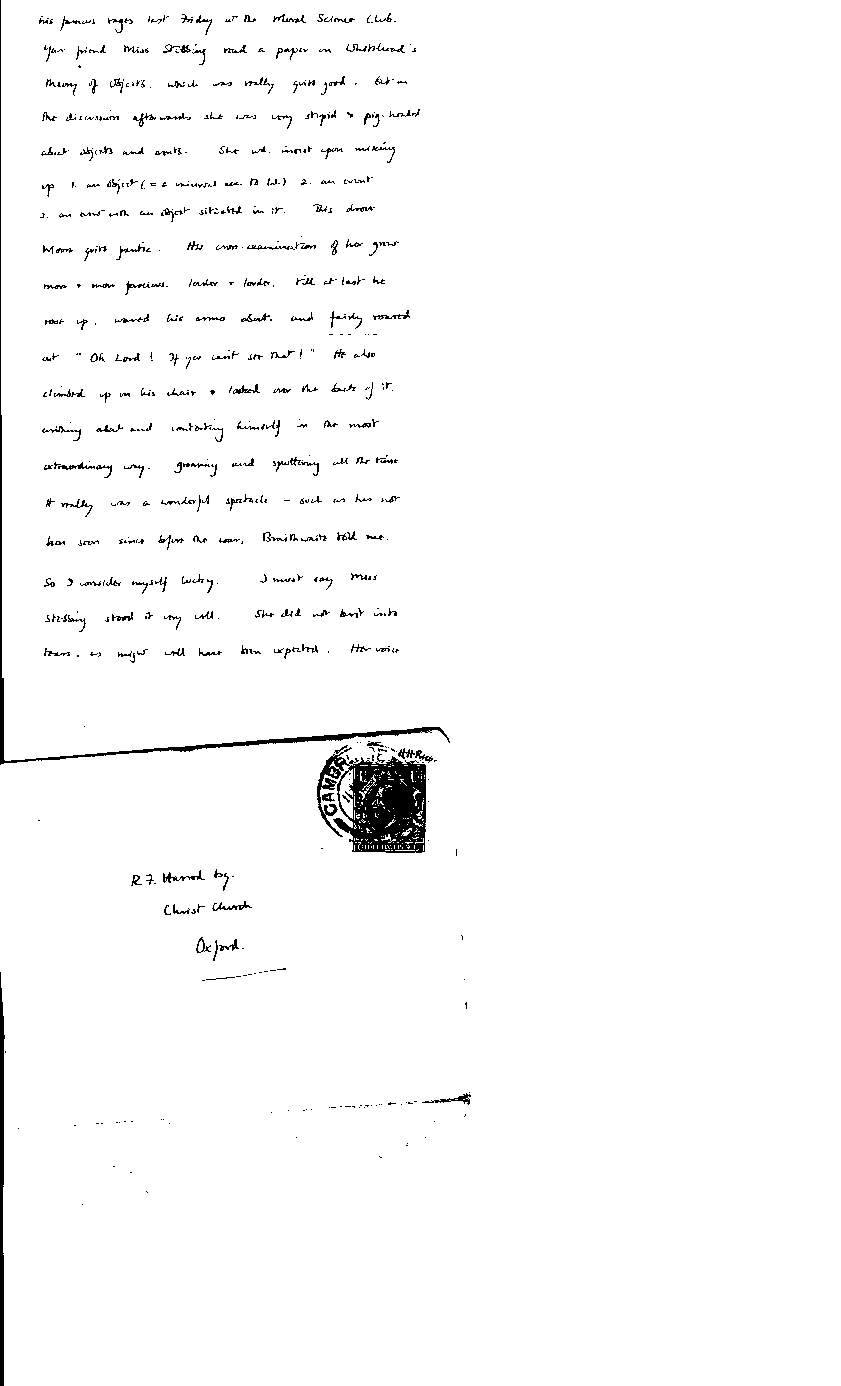 his famous rages last Friday at the Moral Science Club.
Your friend Miss Stebbing read a paper on Whitehead's
theory of objects, which was really quite good. But in
the discussion afterwards she was very stupid & pig-headed
about objects and events. She wd. insist upon mixing
up 1. an object (= a universal acc. to W.) 2. an event
3. an event with an object situated in it. This drove
Moore quite frantic. His cross-examination of her grew
more & more ferocious, louder & louder, till at last he
rose up, waved his arms about, and fairly roared
out "Oh Lord! If you can't see that!" He also
climbed up on his chair & looked over the back of it,
writhing about and contorting himself in the most
extraordinary way, groaning and spluttering all the time
It really was a wonderful spectacle – such as has not
been seen since before the war, Braithwaite told me.
So I consider myself lucky. I must say Miss
Stebbing stood it very well. She did not burst into
tears, as might well have been expected. Her voice
CAMBRI
R. F. Harrod Esq.
Christ Church
Oxford.